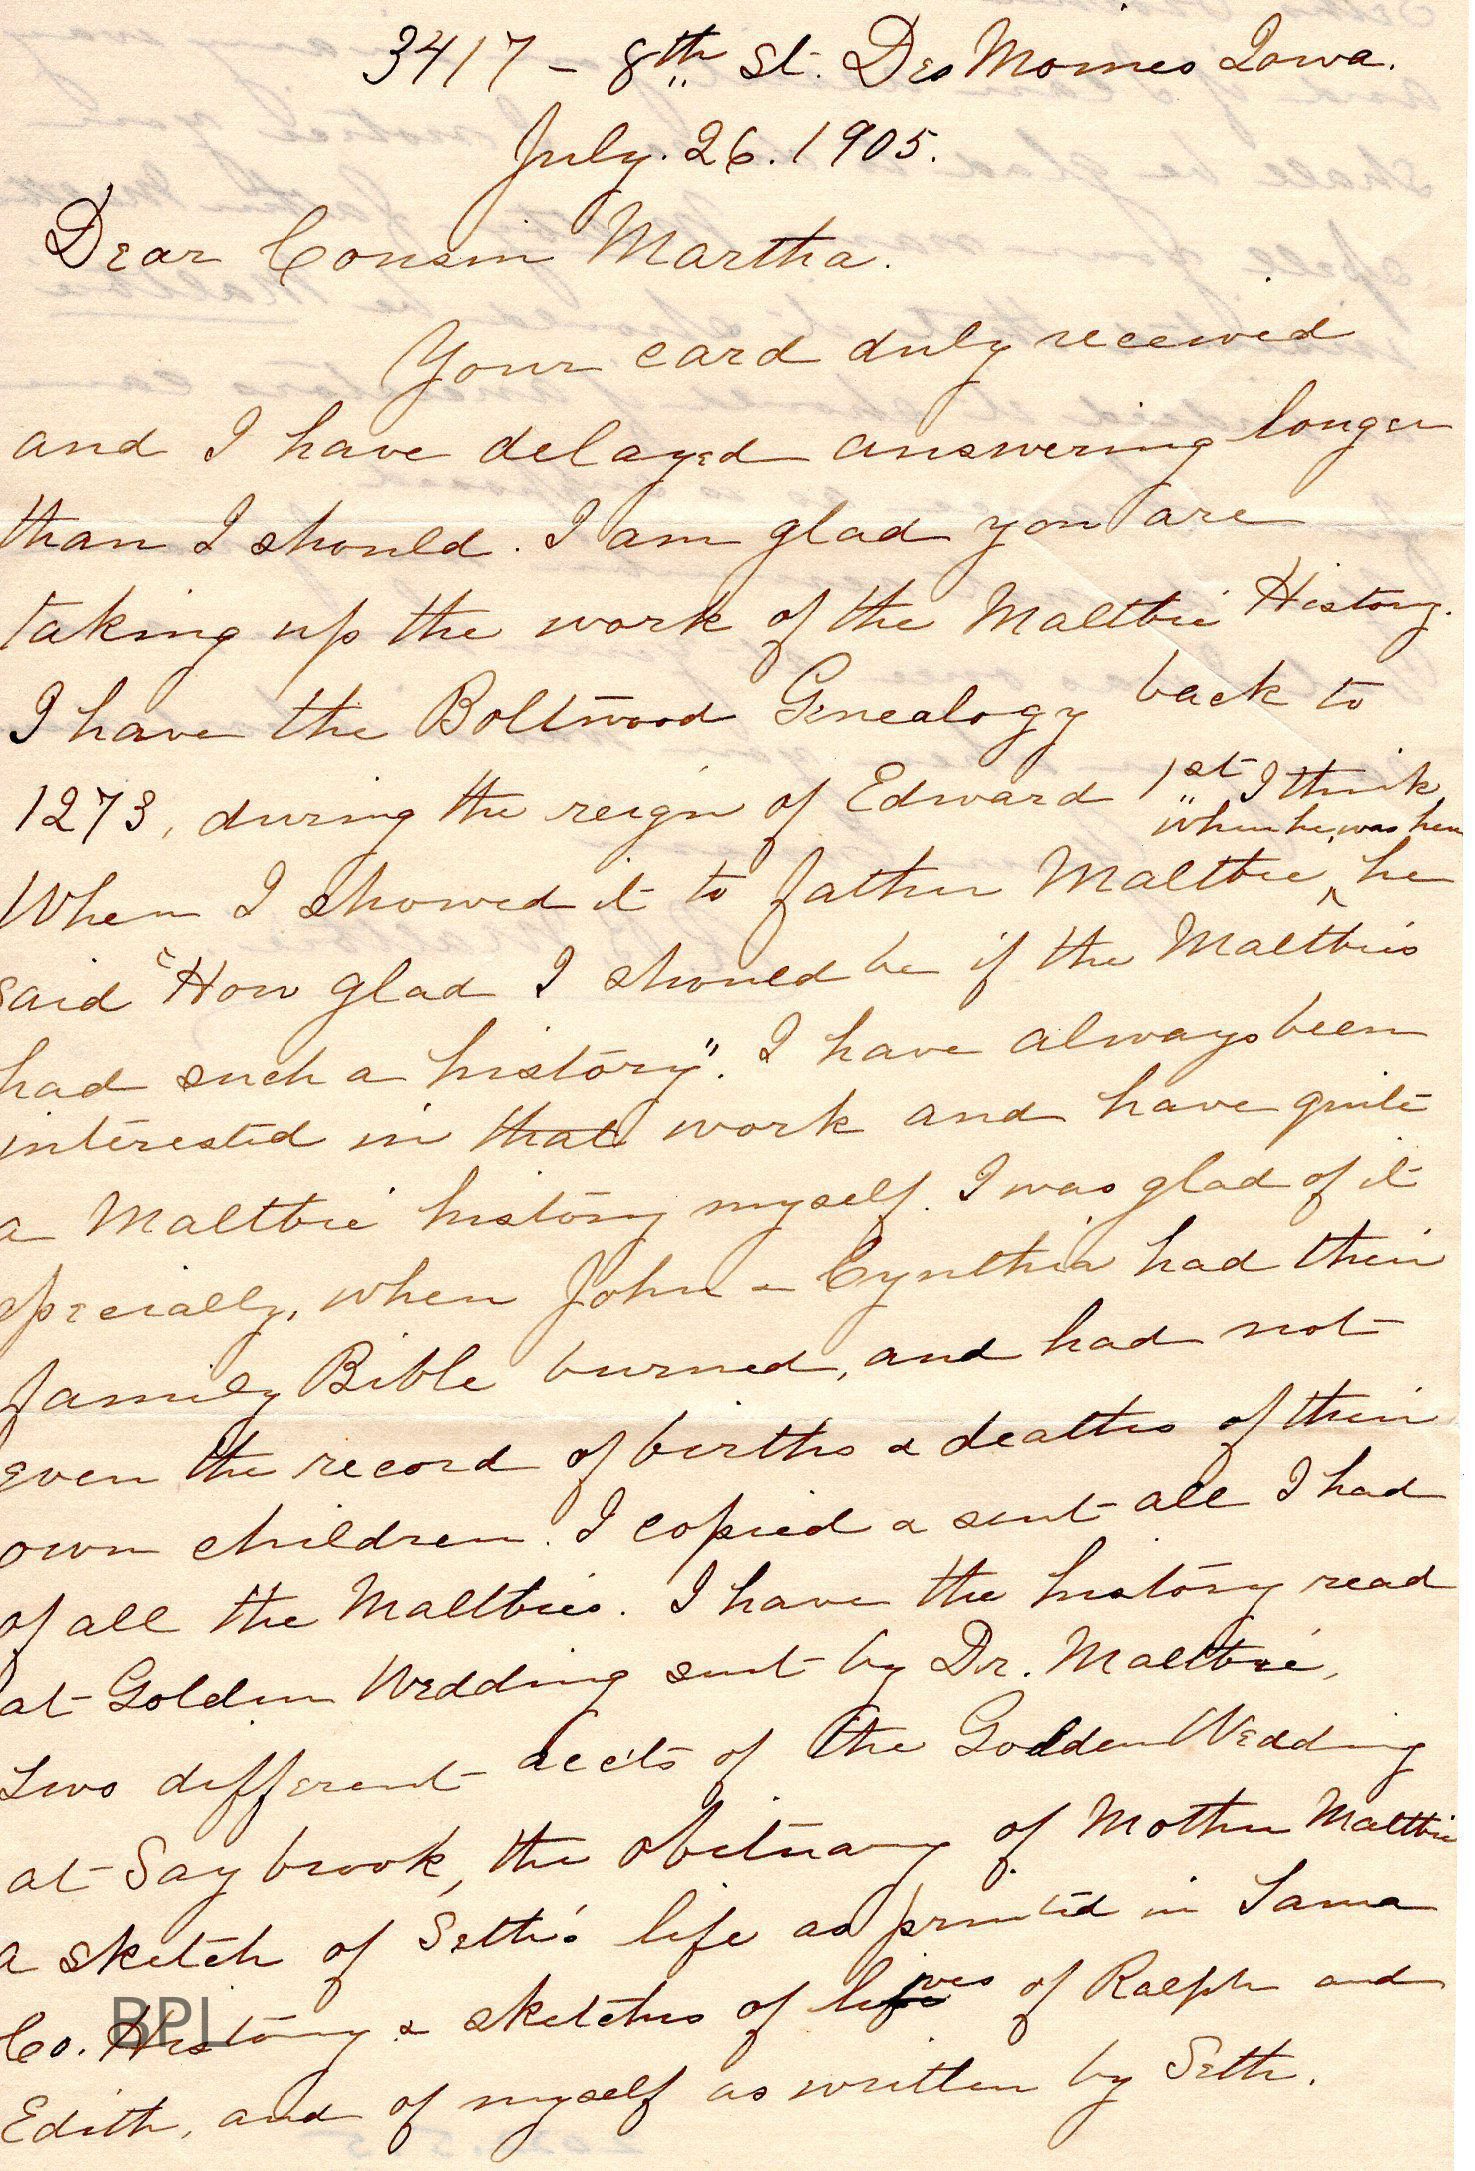 3417 - 8th St. Des Moines Iowa.
July. 26. 1905.
Dear Cousin Martha.
Your card duly received
and I have delayed answering longer
than I should. I am glad you are
taking up the work of the Maltbie History.
I have the Boltwood Genealogy back to
1273, during the reign of Edward 1st I think
when he was here
When I showed it to father Maltbie ^ he
said "How glad I should be if the Maltbies
had such a history". I have always been
interested in that work and have quite
a Maltbie history myself. I was glad of it
specially, when John & Cynthia had their
family Bible burned, and had not
even the record of births & deaths of their
own children. I copied & sent all I had
of all the Maltbies. I have the history read
at Golden Wedding sent by Dr. Maltbie,
two different accts of the Golden Wedding
at Saybrook, the obituary of Mother Maltbie
a sketch of Seth's life as printed in Tama
Co. History & sketches of lives of Ralph and
Edith, and of myself as written by Seth.
BPL